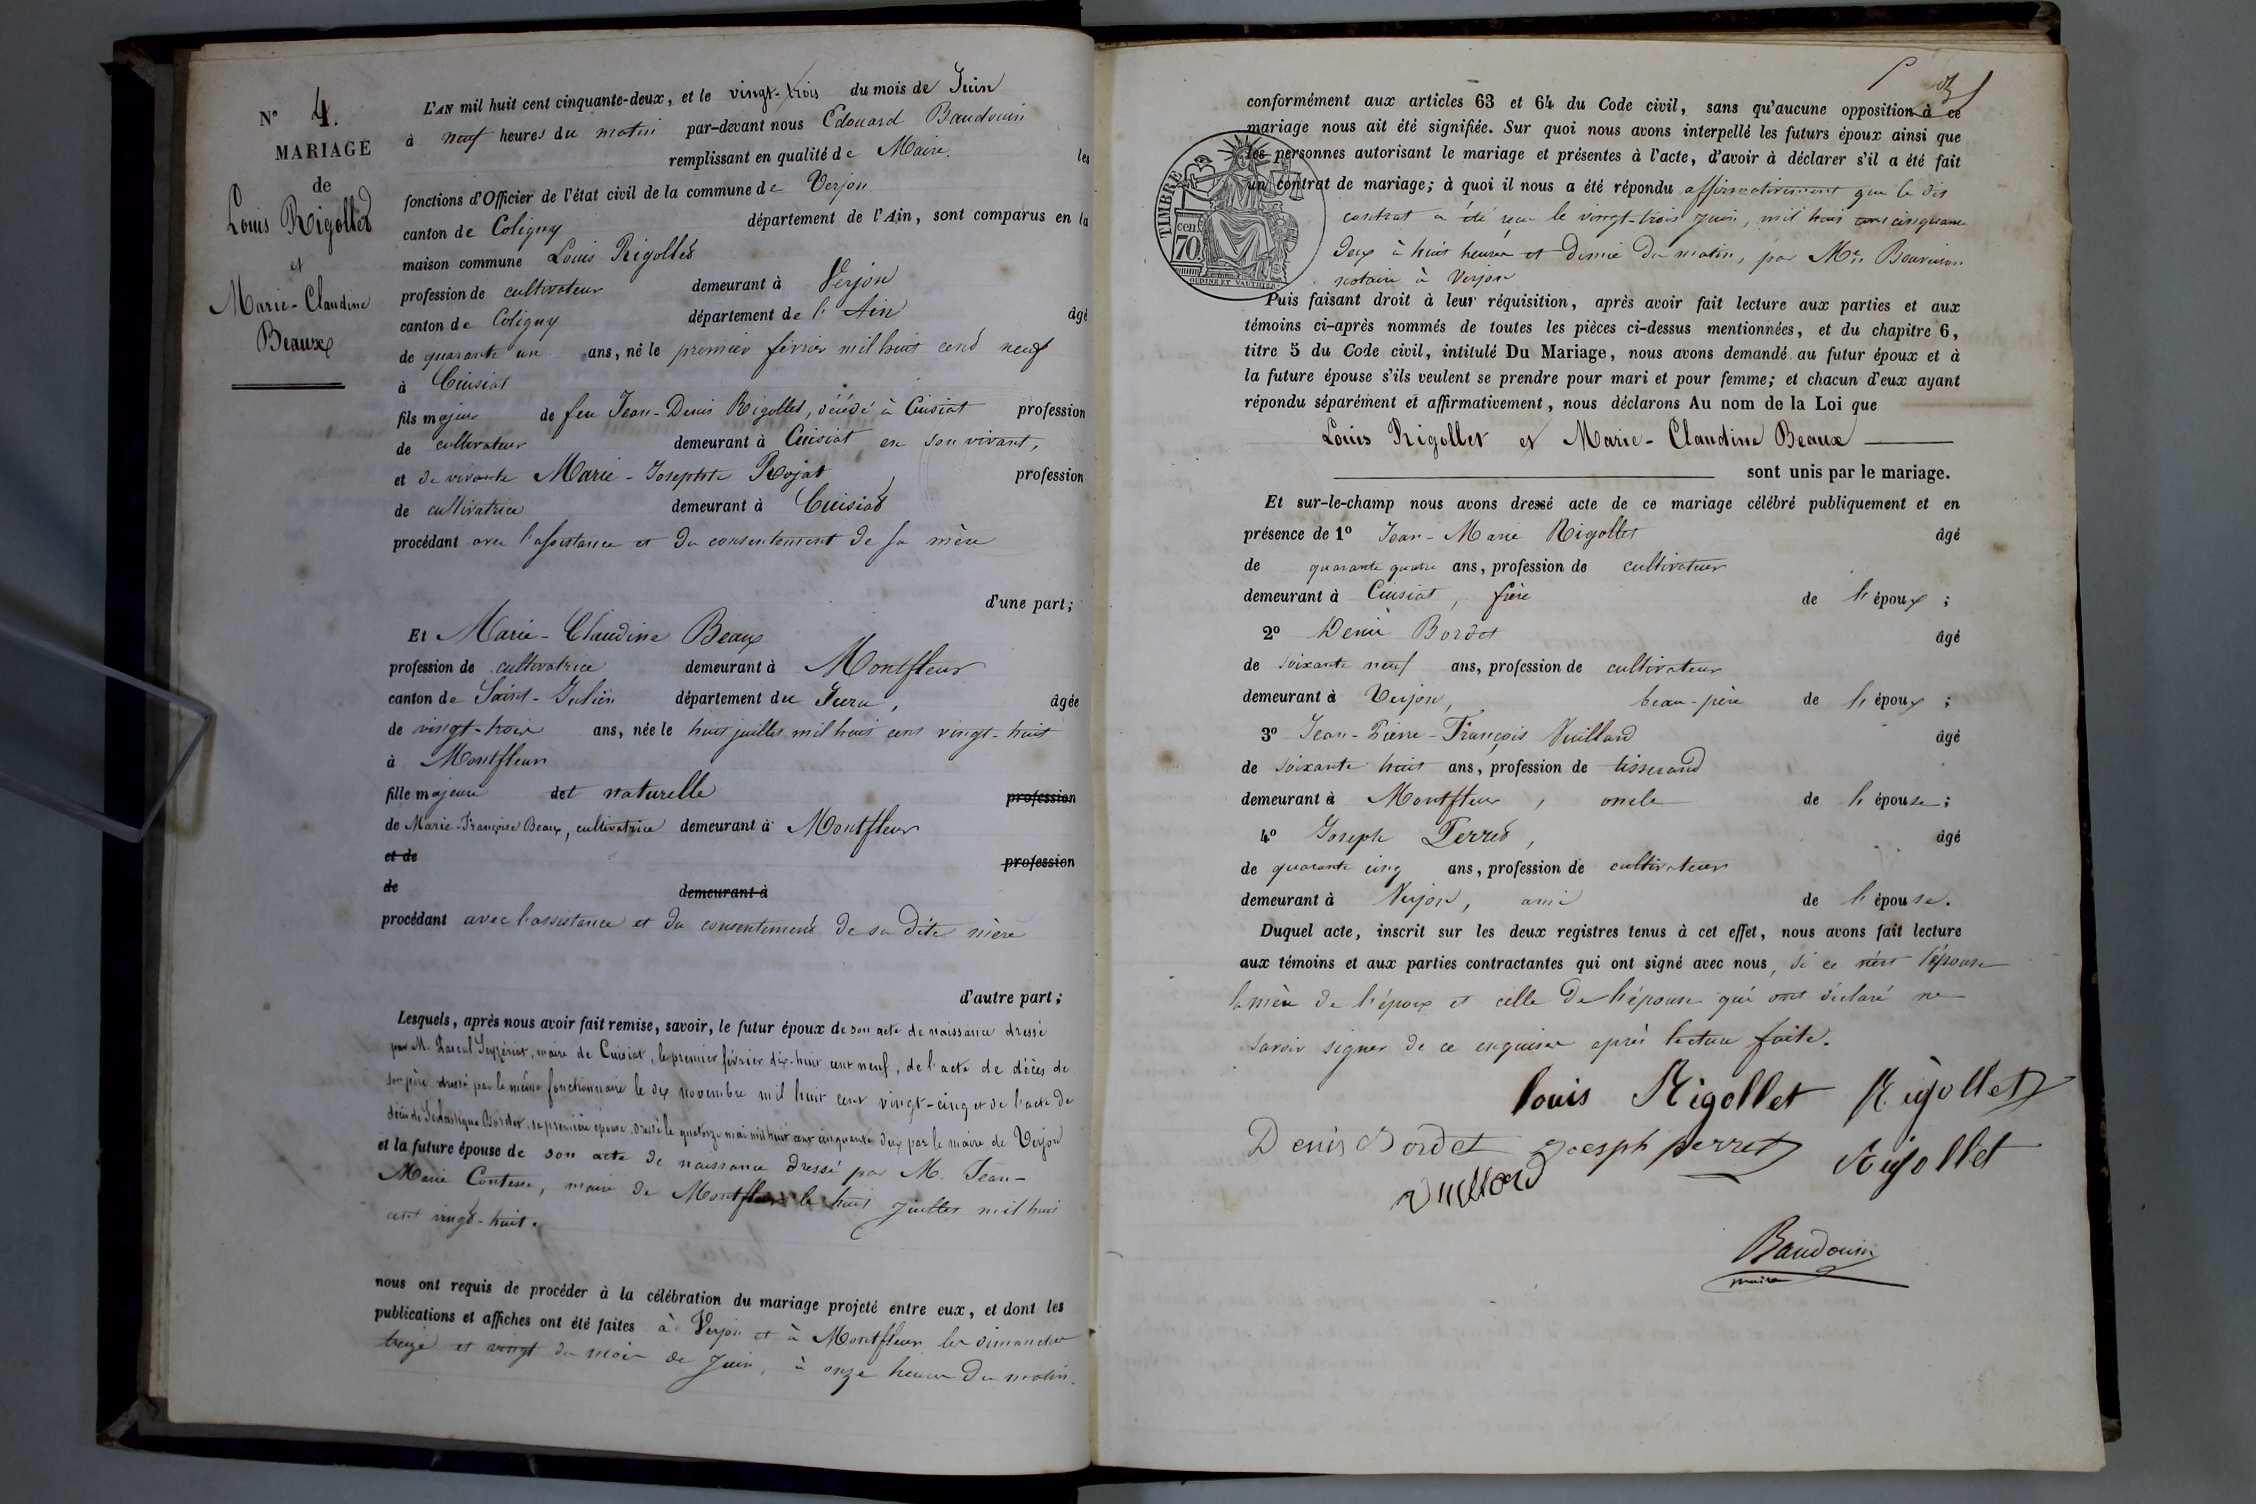 N° 4.
MARIAGE
de
Louis Rigollet
et
Marie-Claudine
Beaux
L'AN mil huit cent cinquante-deux, et le vingt-trois du mois de Juin
à neuf heures du matin par-devant nous Edouard Baudouin
remplissant en qualité de Maire. les
fonctions d'Officier de l'état civil de la commune de Verjon
canton de Coligny département de l'Ain, sont comparus en la
maison commune Louis Rigollet
profession de cultivateur demeurant à Verjon
canton de Coligny département de l'Ain âgé
de quarante un ans, né le premier février mil huit cent neuf
à Cuisiat
fils majeur de feu Jean-Denis Rigollet, décédé à Cuisiat profession
de cultivateur demeurant à Cuisiat en son vivant,
et de vivante Marie-Josephte Rojat profession
de cultivatrice demeurant à Cuisiat
procédant avec l'assistance et du consentement de sa mère
d'une part;
Et Marie-Claudine Beaux
profession de cultivatrice demeurant à Montfleur
canton de Saint-Julien département du Jura, âgée
de vingt-trois ans, née le huit juillet mil huit cent vingt-huit
à Montfleur
fille majeure det naturelle profession
de Marie-Françoise Beaux, cultivatrice demeurant à Montfleur
et de profession
de demeurant à
procédant avec l'assistance et du consentement de sa dite mère
d'autre part;
Lesquels, après nous avoir fait remise, savoir, le futur époux de son acte de naissance dressé
par M. Pascal Seyzériat, maire de Cuisiat, le premier février dix-huit cent neuf, de l'acte de décès de
son père dressé par le même fonctionnaire le dix novembre mil huit cent vingt-cinq et de l'acte de
décès de Bordet, sa première épouse, dressé le quatorze mai mil huit cent cinquante deux par le maire de Verjon
et la future épouse de son acte de naissance dressé par M. Jean-
Marie Contesse, maire de Montfleur le huit juillet mil huit
cent vingt-huit.
nous ont requis de procéder à la célébration du mariage projeté entre eux, et dont les
publications et affiches ont été faites à Verjon et à Montfleur les dimanches
treize et vingt du mois de Juin, à onze heures du matin.
conformément aux articles 63 et 64 du Code civil, sans qu'aucune opposition à ce
mariage nous ait été signifiée. Sur quoi nous avons interpellé les futurs époux ainsi que
les personnes autorisant le mariage et présentes à l'acte, d'avoir à déclarer s'il a été fait
un contrat de mariage; à quoi il nous a été répondu affirmativement que le dit
contrat a été reçu le vingt-trois juin, mil huit cent cinquante
deux à huit heures et demie du matin, par Me
notaire à Verjon
TIMBRE
cen.
70
OUDINÉ ET VAUTHIER
Puis faisant droit à leur réquisition, après avoir fait lecture aux parties et aux
témoins ci-après nommés de toutes les pièces ci-dessus mentionnées, et du chapitre 6,
titre 5 du Code civil, intitulé Du Mariage, nous avons demandé au futur époux et à
la future épouse s'ils veulent se prendre pour mari et pour femme; et chacun d'eux ayant
répondu séparément et affirmativement, nous déclarons Au nom de la Loi que
Louis Rigollet et Marie-Claudine Beaux
sont unis par le mariage.
Et sur-le-champ nous avons dressé acte de ce mariage célébré publiquement et en
présence de 1° Jean-Marie Rigollet âgé
de quarante quatre ans, profession de cultivateur
demeurant à Cuisiat, frère de l'époux;
2° Denis Bordet âgé
de soixante neuf ans, profession de cultivateur
demeurant à Verjon, beau-père de l'époux;
3° Jean-Pierre-François Vuillard âgé
de soixante huit ans, profession de tisserand
demeurant à Montfleur, oncle de l'épouse;
4° Joseph Perret, âgé
de quarante cinq ans, profession de cultivateur
demeurant à Verjon, ami de l'épouse.
Duquel acte, inscrit sur les deux registres tenus à cet effet, nous avons fait lecture
aux témoins et aux parties contractantes qui ont signé avec nous, si ce n'est l'épouse
la mère de l'époux et celle de l'épouse qui ont déclaré ne
savoir signer de ce enquises après lecture faite.
Louis Rigollet Rigollet
Denis Bordet Joesph perret Rigollet
Vuillard
Baudouin
maire